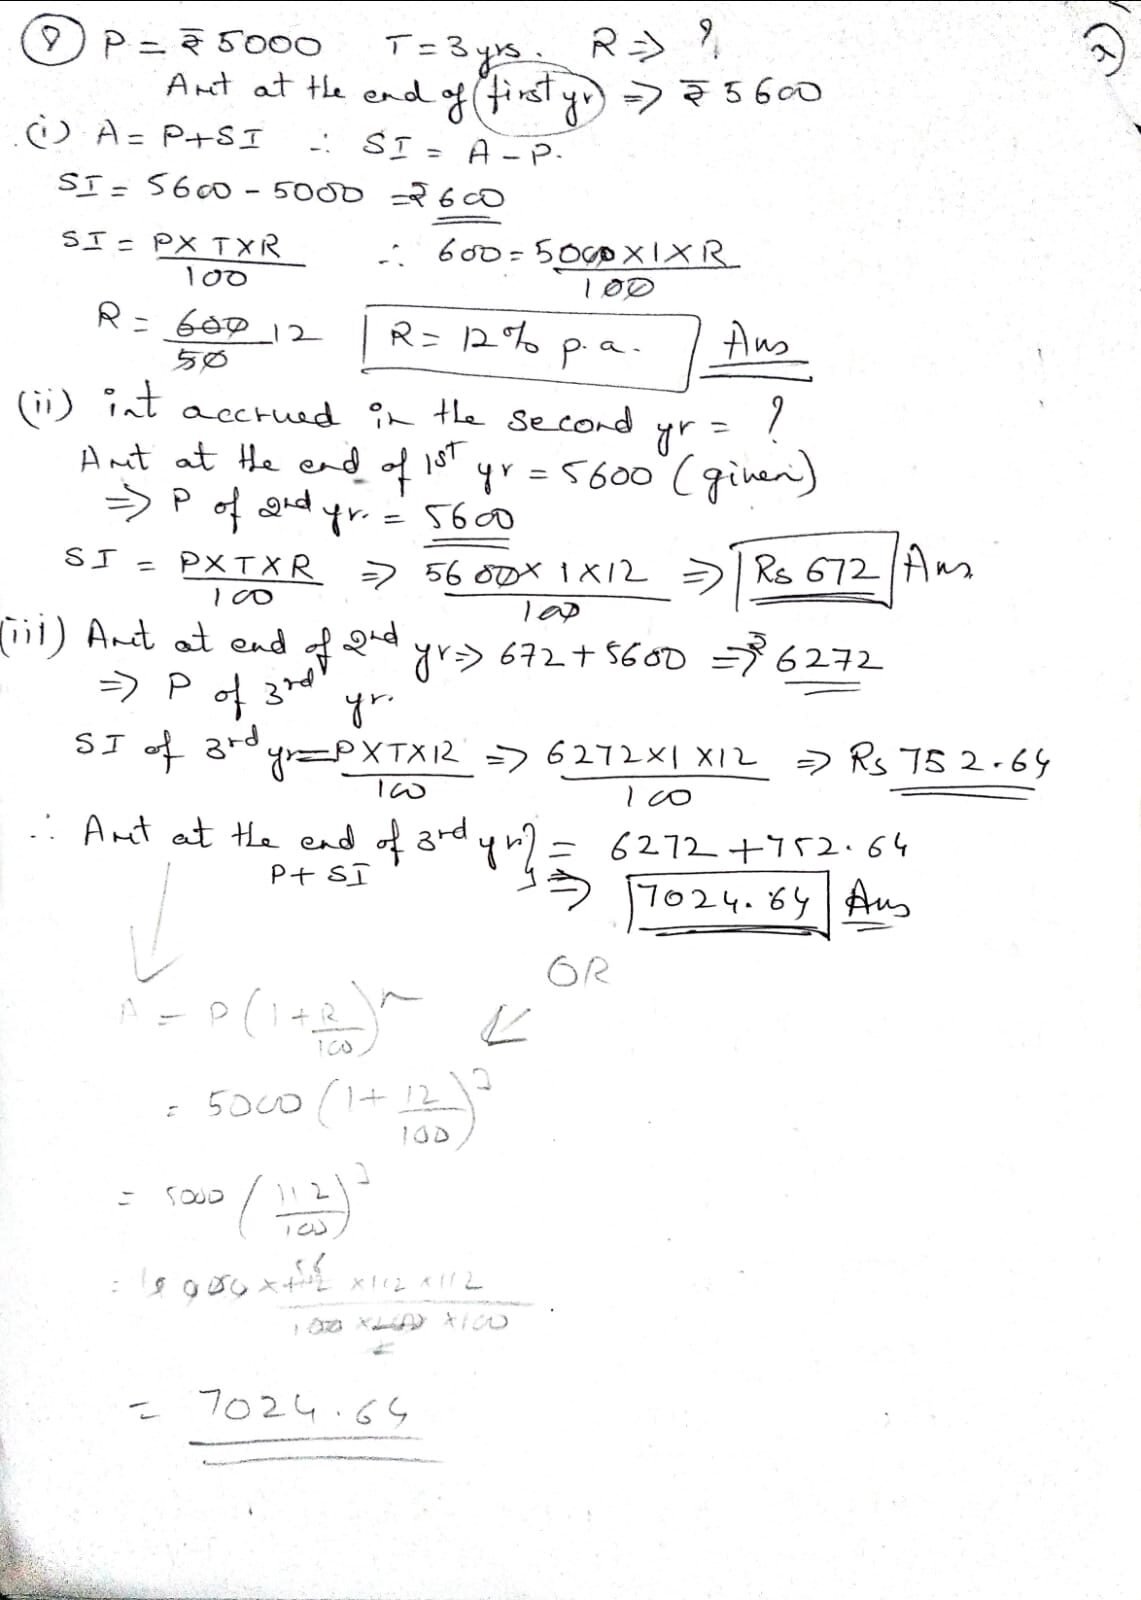 8 P = ₹ 5000 T = 3 yrs. R ⇒ ?
Amt at the end of first yr ⇒ ₹ 5600
(i) A = P+SI ∴ SI = A - P.
SI = 5600 - 5000 = ₹ 600
SI = P X T X R / 100 ∴ 600 = 5000 X 1 X R / 100
R = 600 / 50 12 R = 12% p.a. Ans
(ii) int accrued in the second yr = ?
Amt at the end of 1st yr = 5600 (given)
⇒ P of 2nd yr. = 5600
SI = P X T X R / 100 ⇒ 5600 X 1 X 12 / 100 ⇒ Rs 672 Ans
(iii) Amt at end of 2nd yr ⇒ 672 + 5600 ⇒ ₹ 6272
⇒ P of 3rd yr.
SI of 3rd yr = P X T X 12 / 100 ⇒ 6272 X 1 X 12 / 100 ⇒ Rs 752.64
∴ Amt at the end of 3rd yr} = 6272 + 752.64
P + SI ⇒ 7024.64 Ans
OR
A = P (1 + R/100)^n
= 5000 (1 + 12/100)^3
= 5000 (112/100)^3
56 x 112 x 112
100 x 100 x 100
= 7024.64